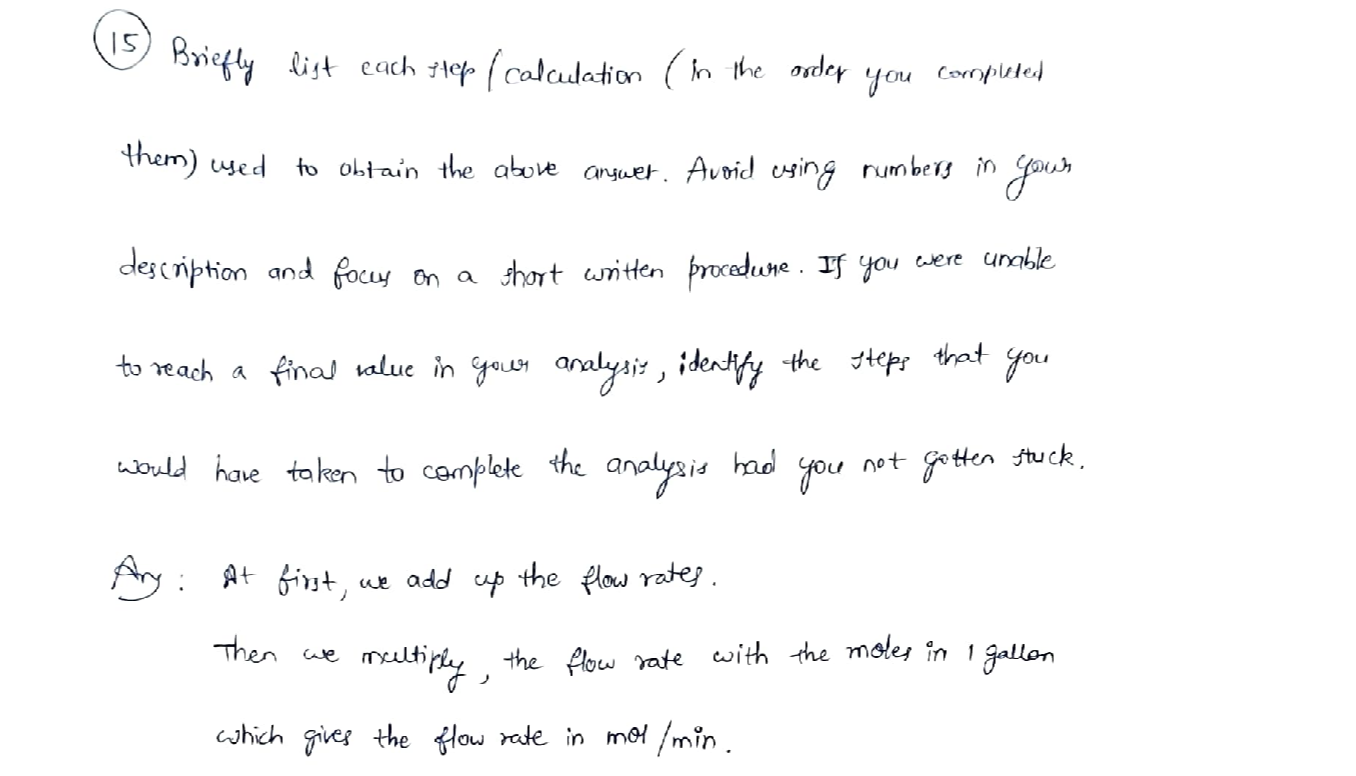 15 Briefly list each step / calculation (in the order you completed
them) used to obtain the above answer. Avoid using numbers in your
description and focus on a short written procedure. If you were unable
to reach a final value in your analysis, identify the steps that you
would have taken to complete the analysis had you not gotten stuck.
Ans: At first, we add up the flow rates.
Then we multiply, the flow rate with the moles in 1 gallon
which gives the flow rate in mol/min.